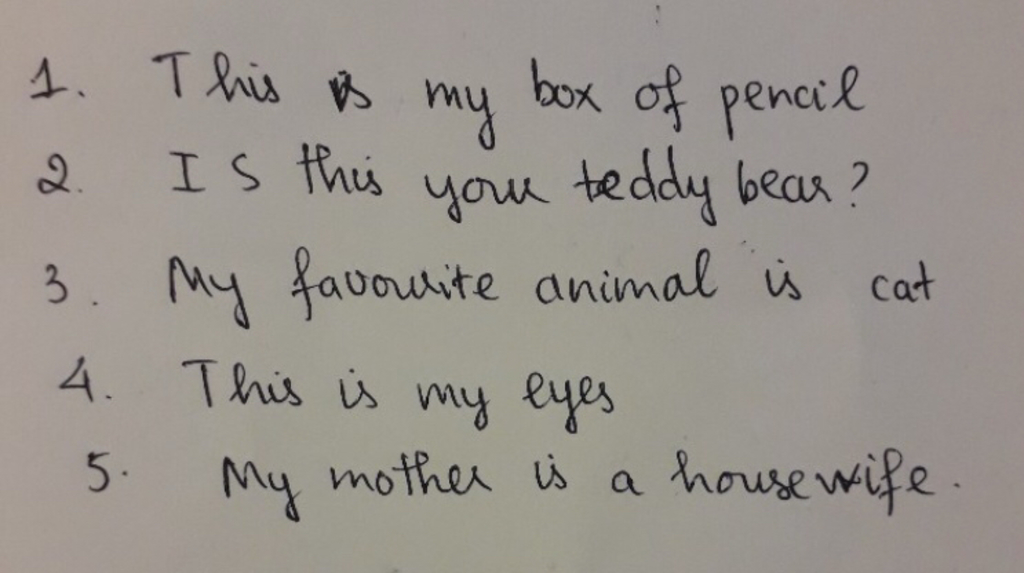 1. This is my box of pencil
2. IS this your teddy bear?
3. My favourite animal is cat
4. This is my eyes
5. My mother is a housewife.